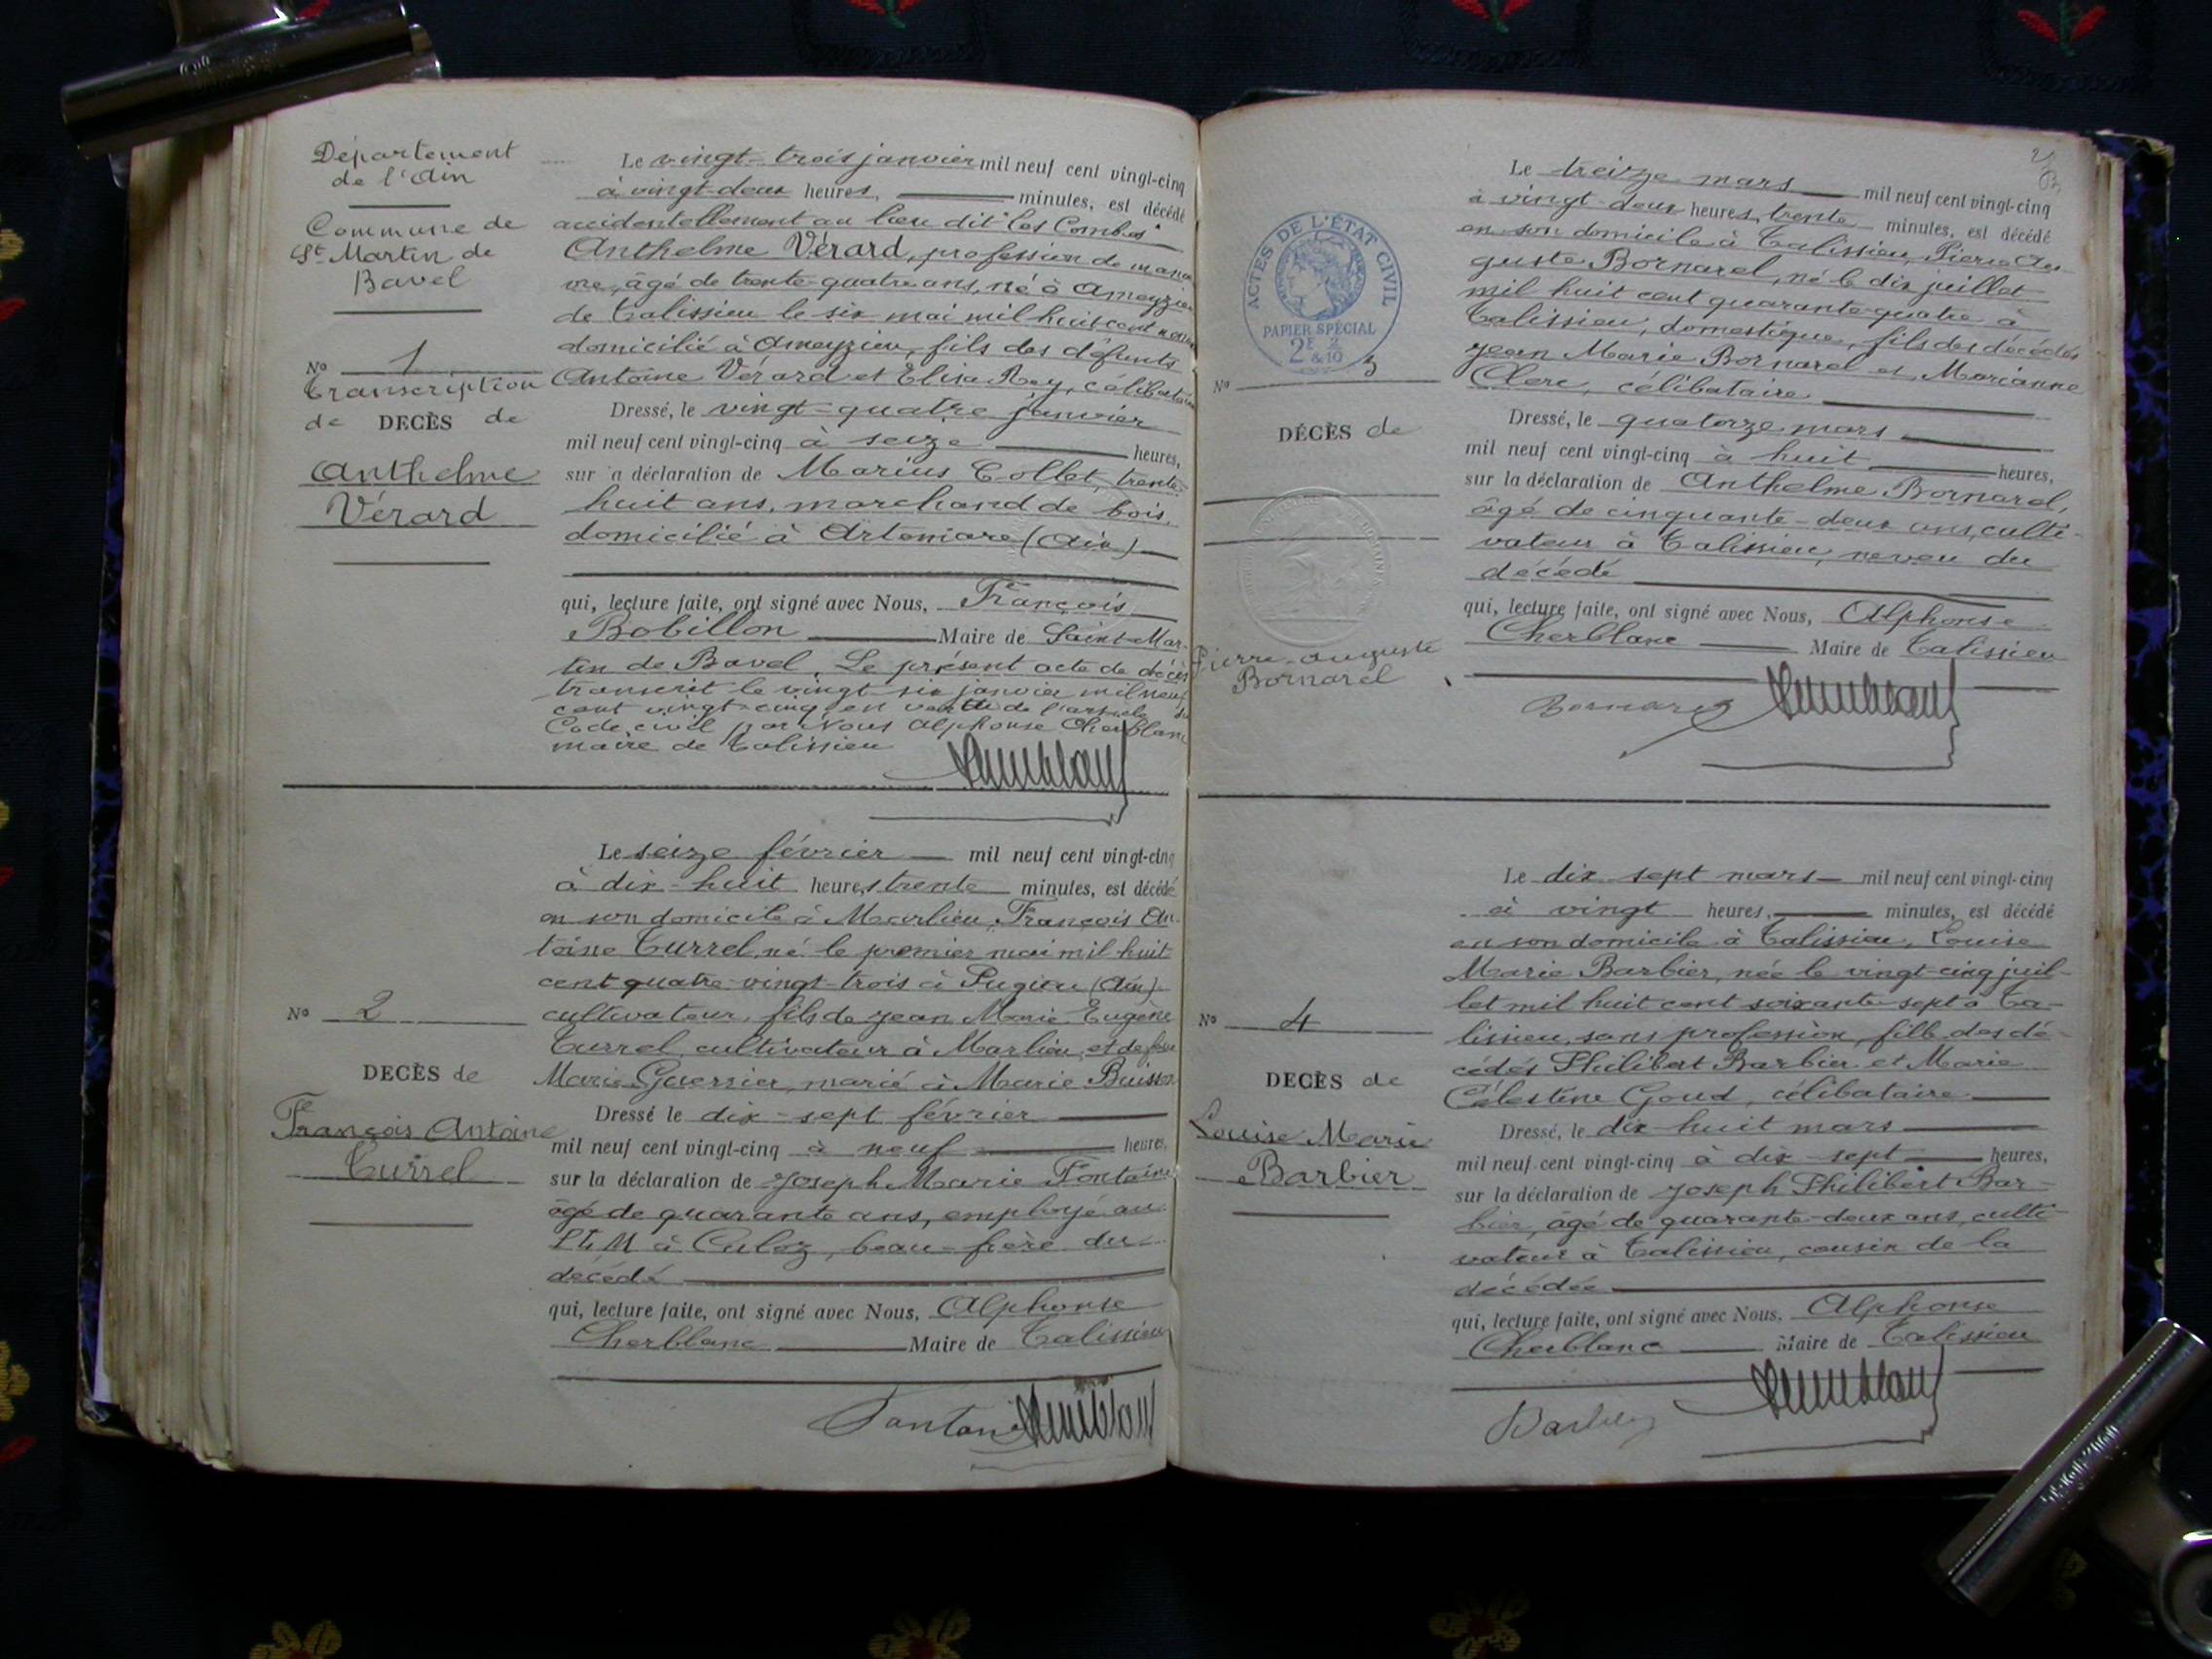 Département
de l'Ain
Commune de
St Martin de
Bavel
No 1
Transcription
de DECÈS de
Anthelme
Vérard
Le vingt-trois janvier mil neuf cent vingt-cinq
à vingt-deux heures, minutes, est décédé
accidentellement au lieu dit "les Combes"
Anthelme Vérard, profession de
âgé de trente-quatre ans, né à Ameyzieu
de Talissieu le six mai mil huit cent
domicilié à Ameyzieu, fils des défunts
Antoine Vérard et Elisa Rey, célibataire
Dressé, le vingt-quatre janvier
mil neuf cent vingt-cinq à seize heures,
sur a déclaration de Marius Collet, trente-
huit ans, marchand de bois,
domicilié à Artemare (Ain)
qui, lecture faite, ont signé avec Nous, François
Bobillon Maire de Saint-Mar-
tin de Bavel. Le présent acte de décès
transcrit le vingt-six janvier mil neuf
cent vingt-cinq en vertu de l'article du
Code civil par Nous Alphonse Cherblanc
maire de Talissieu
No 2
DECÈS de
François Antoine
Turrel
Le seize février mil neuf cent vingt-cinq
à dix-huit heures, trente minutes, est décédé
en son domicile à Marlieu, François An-
toine Turrel, né le premier mai mil huit
cent quatre-vingt-trois à Pugieu (Ain)
cultivateur, fils de Jean Marie Eugène
Turrel, cultivateur à Marlieu, et de feue
Marie Guerrier, marié à Marie Buisson
Dressé le dix-sept février
mil neuf cent vingt-cinq à neuf heures,
sur la déclaration de Joseph Marie Fontaine
âgé de quarante ans, employé au
PLM à Culoz, beau-frère du
décédé
qui, lecture faite, ont signé avec Nous, Alphonse
Cherblanc Maire de Talissieu
ACTES DE L'ÉTAT CIVIL
PAPIER SPÉCIAL
2F 2/10
No 3
DÉCÈS de
Pierre-Auguste
Bornarel
Le treize mars mil neuf cent vingt-cinq
à vingt-deux heures, trente minutes, est décédé
en son domicile à Talissieu, Pierre Au-
guste Bornarel, né le dix juillet
mil huit cent quarante-quatre à
Talissieu, domestique, fils des décédés
Jean Marie Bornarel et Marianne
Clerc, célibataire
Dressé, le quatorze mars
mil neuf cent vingt-cinq à huit heures,
sur la déclaration de Anthelme Bornarel,
âgé de cinquante-deux ans, culti-
vateur à Talissieu, neveu du
décédé
qui, lecture faite, ont signé avec Nous, Alphonse
Cherblanc Maire de Talissieu
Bornarel
No 4
DECÈS de
Louise Marie
Barbier
Le dix sept mars mil neuf cent vingt-cinq
à vingt heures, minutes, est décédé
en son domicile à Talissieu, Louise
Marie Barbier, née le vingt-cinq juil-
let mil huit cent soixante-sept à Ta-
lissieu, sans profession, fille des dé-
cédés Philibert Barbier et Marie
Célestine Goud, célibataire
Dressé, le dix-huit mars
mil neuf cent vingt-cinq à dix-sept heures,
sur la déclaration de Joseph Philibert Bar-
bier, âgé de quarante-deux ans, culti-
vateur à Talissieu, cousin de la
décédée
qui, lecture faite, ont signé avec Nous, Alphonse
Cherblanc Maire de Talissieu
Barbier